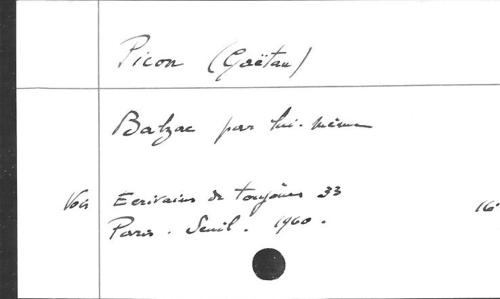 Picon (Gaëtan)
Balzac par lui-même
Voir Ecrivains de toujours 33
Paris. Seuil. 1960. 16°